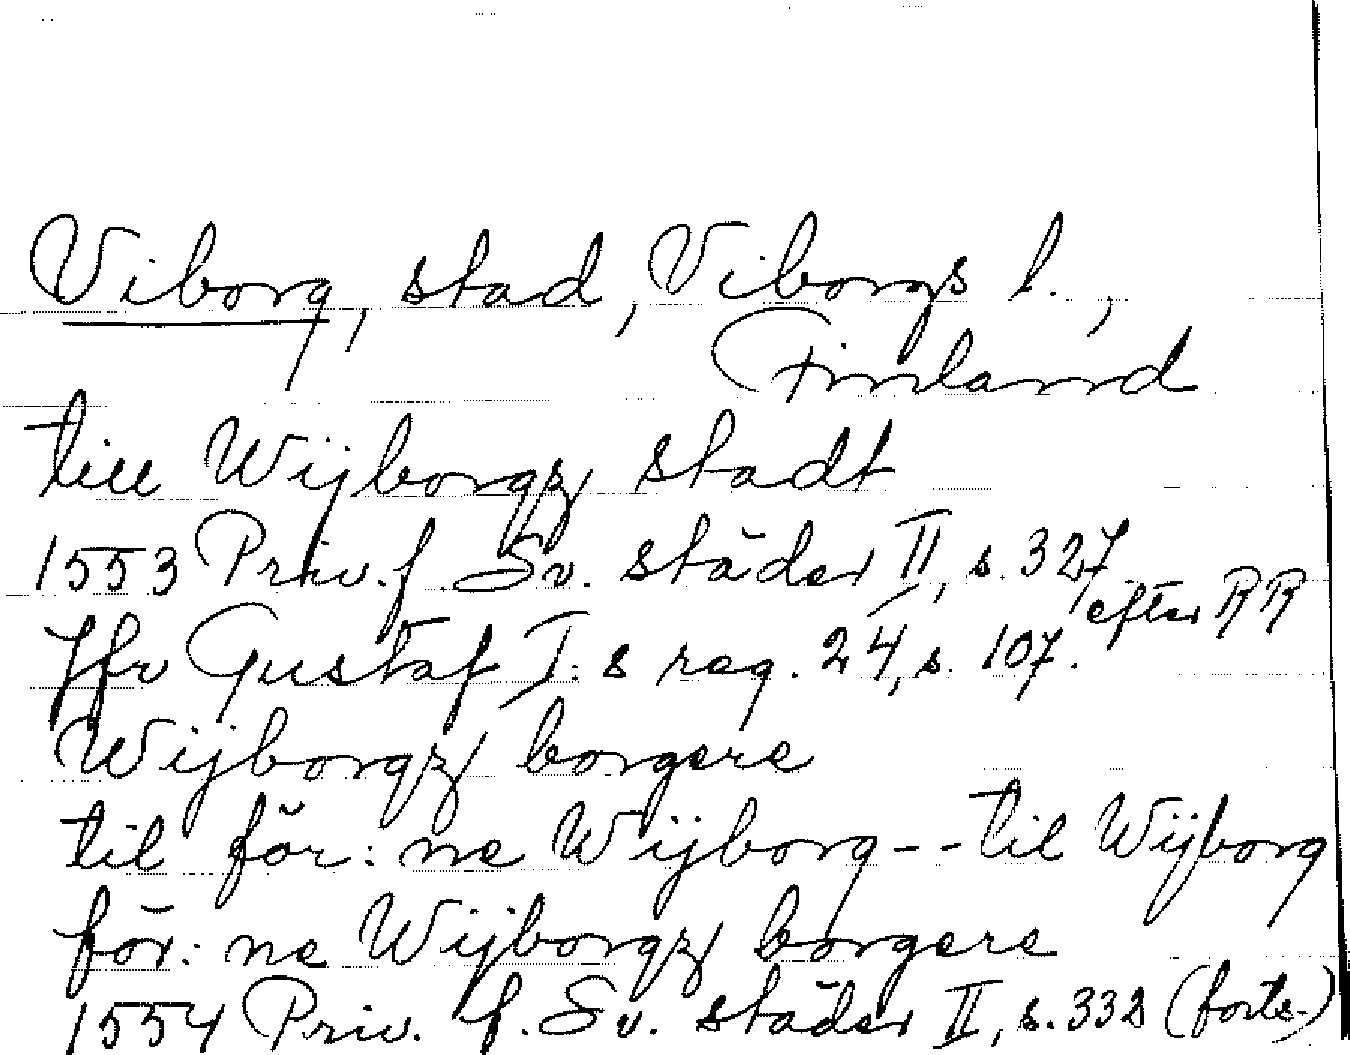 Viborg, stad, Viborgs l.,
Finland
till Wijborgz stadt
1553 Priv. f. Sv. städer II, s. 327
efter RR
Jfr Gustaf I:s reg. 24, s. 107.
Wijborgz borgere
til för:ne Wijborg -- til Wijborg
för:ne Wijborgz borgere
1554 Priv. f. Sv. städer II, s. 332 (forts.)